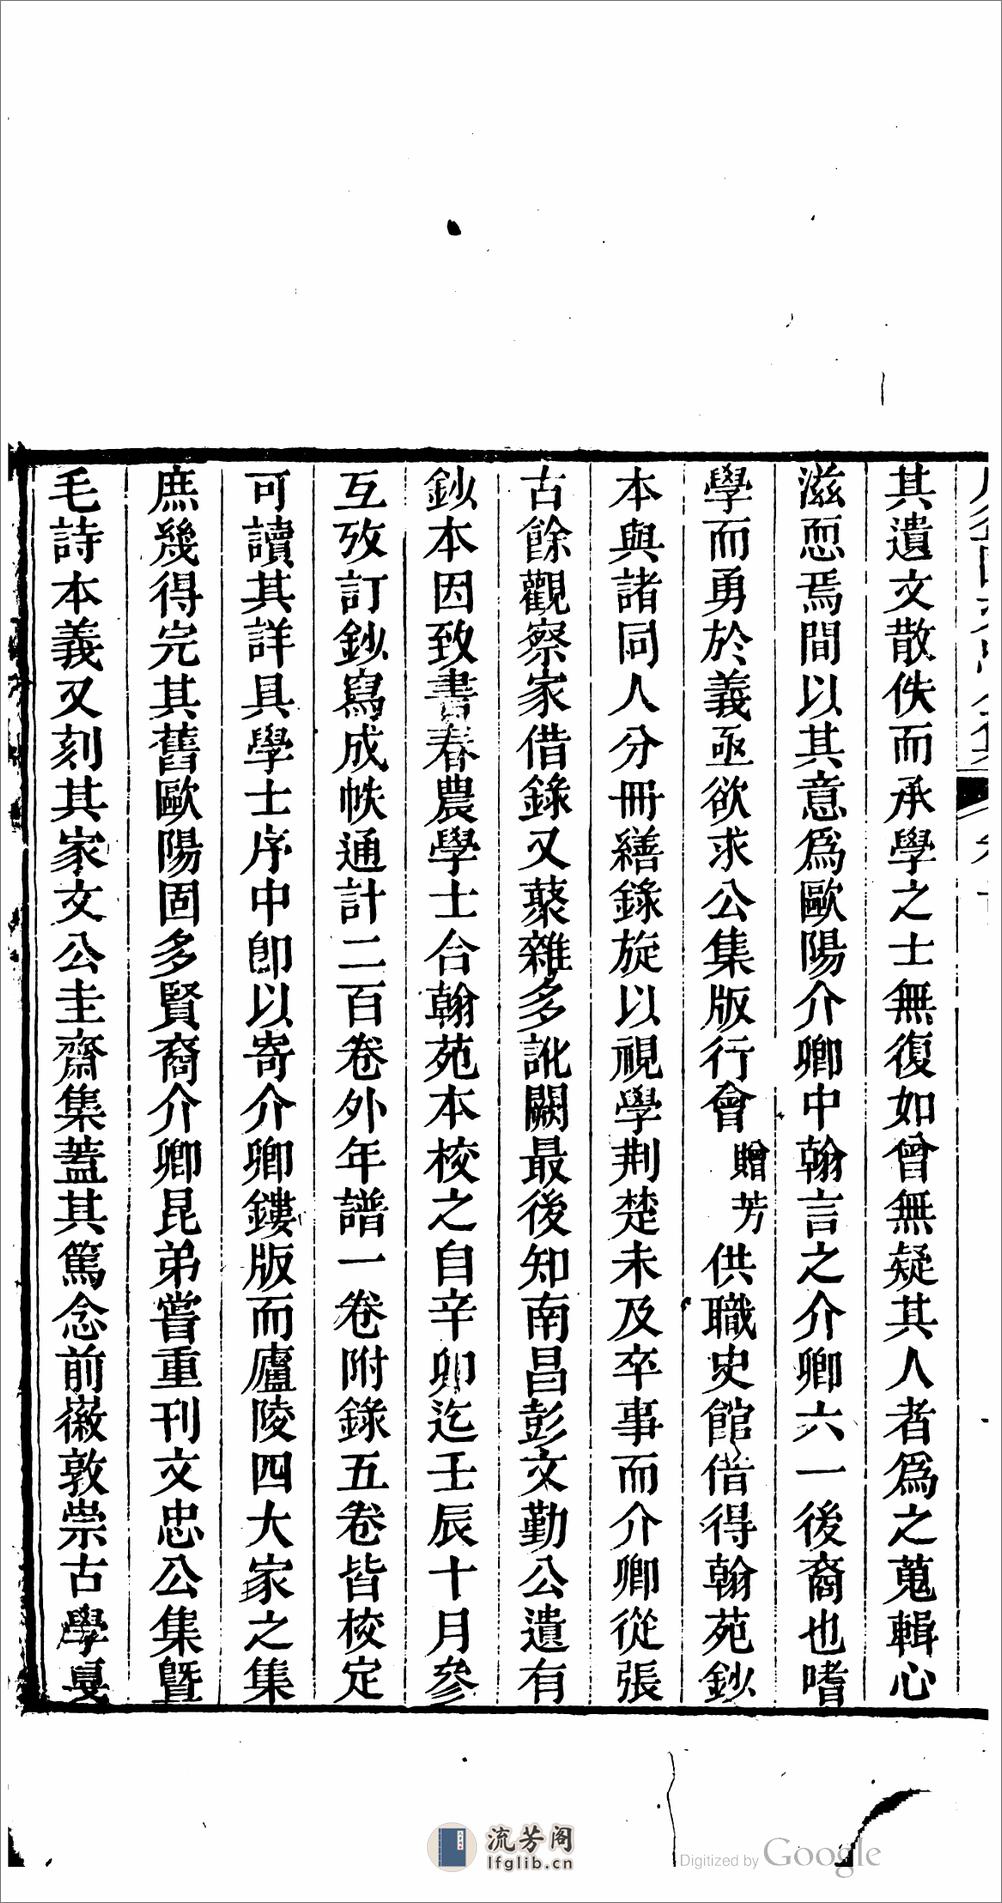 其遺文散佚而承學之士無復如曾無疑其人者爲之蒐輯心
滋恧焉間以其意爲歐陽介卿中翰言之介卿六一後裔也嗜
學而勇於義亟欲求公集版行會贈芳供職史館借得翰苑鈔
本與諸同人分冊繕錄旋以視學荆楚未及卒事而介卿從張
古餘觀察家借錄又藂雜多訛闕最後知南昌彭文勤公遺有
鈔本因致書春農學士合翰苑本校之自辛卯迄壬辰十月參
互攷訂鈔寫成帙通計二百卷外年譜一卷附錄五卷皆校定
可讀其詳具學士序中卽以寄介卿鏤版而廬陵四大家之集
庶幾得完其舊歐陽固多賢裔介卿昆弟嘗重刊文忠公集曁
毛詩本義又刻其家文公圭齋集蓋其篤念前徽敦崇古學
流芳阁
lfglib.cn
Digitized by Google